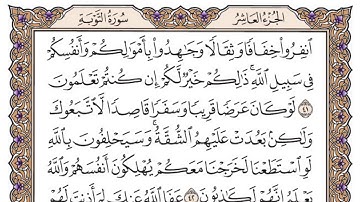 الجزء العاشر سورة التوبة
ٱنفِرُوا۟ خِفَافًا وَثِقَالًا وَجَٰهِدُوا۟ بِأَمْوَٰلِكُمْ وَأَنفُسِكُمْ
فِى سَبِيلِ ٱللَّهِ ۚ ذَٰلِكُمْ خَيْرٌ لَّكُمْ إِن كُنتُمْ تَعْلَمُونَ
٤١ لَوْ كَانَ عَرَضًا قَرِيبًا وَسَفَرًا قَاصِدًا لَّٱتَّبَعُوكَ
وَلَٰكِنۢ بَعُدَتْ عَلَيْهِمُ ٱلشُّقَّةُ ۚ وَسَيَحْلِفُونَ بِٱللَّهِ
لَوِ ٱسْتَطَعْنَا لَخَرَجْنَا مَعَكُمْ يُهْلِكُونَ أَنفُسَهُمْ وَٱللَّهُ
يَعْلَمُ إِنَّهُمْ لَكَٰذِبُونَ ٤٢ عَفَا ٱللَّهُ عَنكَ لِمَ أَذِنتَ لَهُمْ